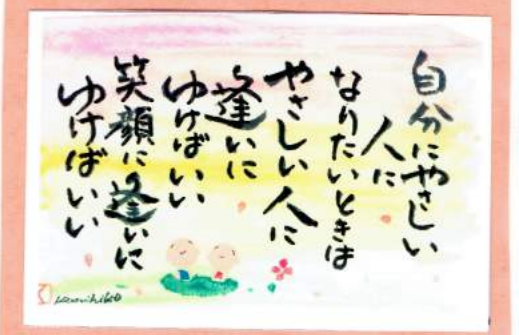 自分にやさしい
人に
なりたいときは
やさしい人に
逢いに
ゆけばいい
笑顔に逢いに
ゆけばいい